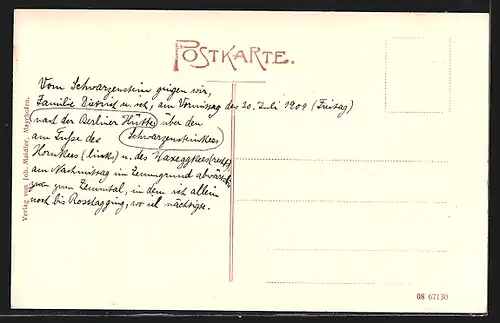 POSTKARTE.
Vom Schwarzenstein gingen wir,
Familie Dietrich u. ich, am Vormittag des 30. Juli 1909 (Freitag)
nach der Berliner Hütte über den
am Fuße des Schwarzensteinkees
Hornkees (links) u. des Waxeggkees (rechts)
am Nachmittag im Zemmgrund abwärts
zum Zemmtal, in dem ich allein
noch bis Rosshag ging, wo ich nächtigte.
Verlag von Joh. Maidler, Mayrhofen.
08 67130